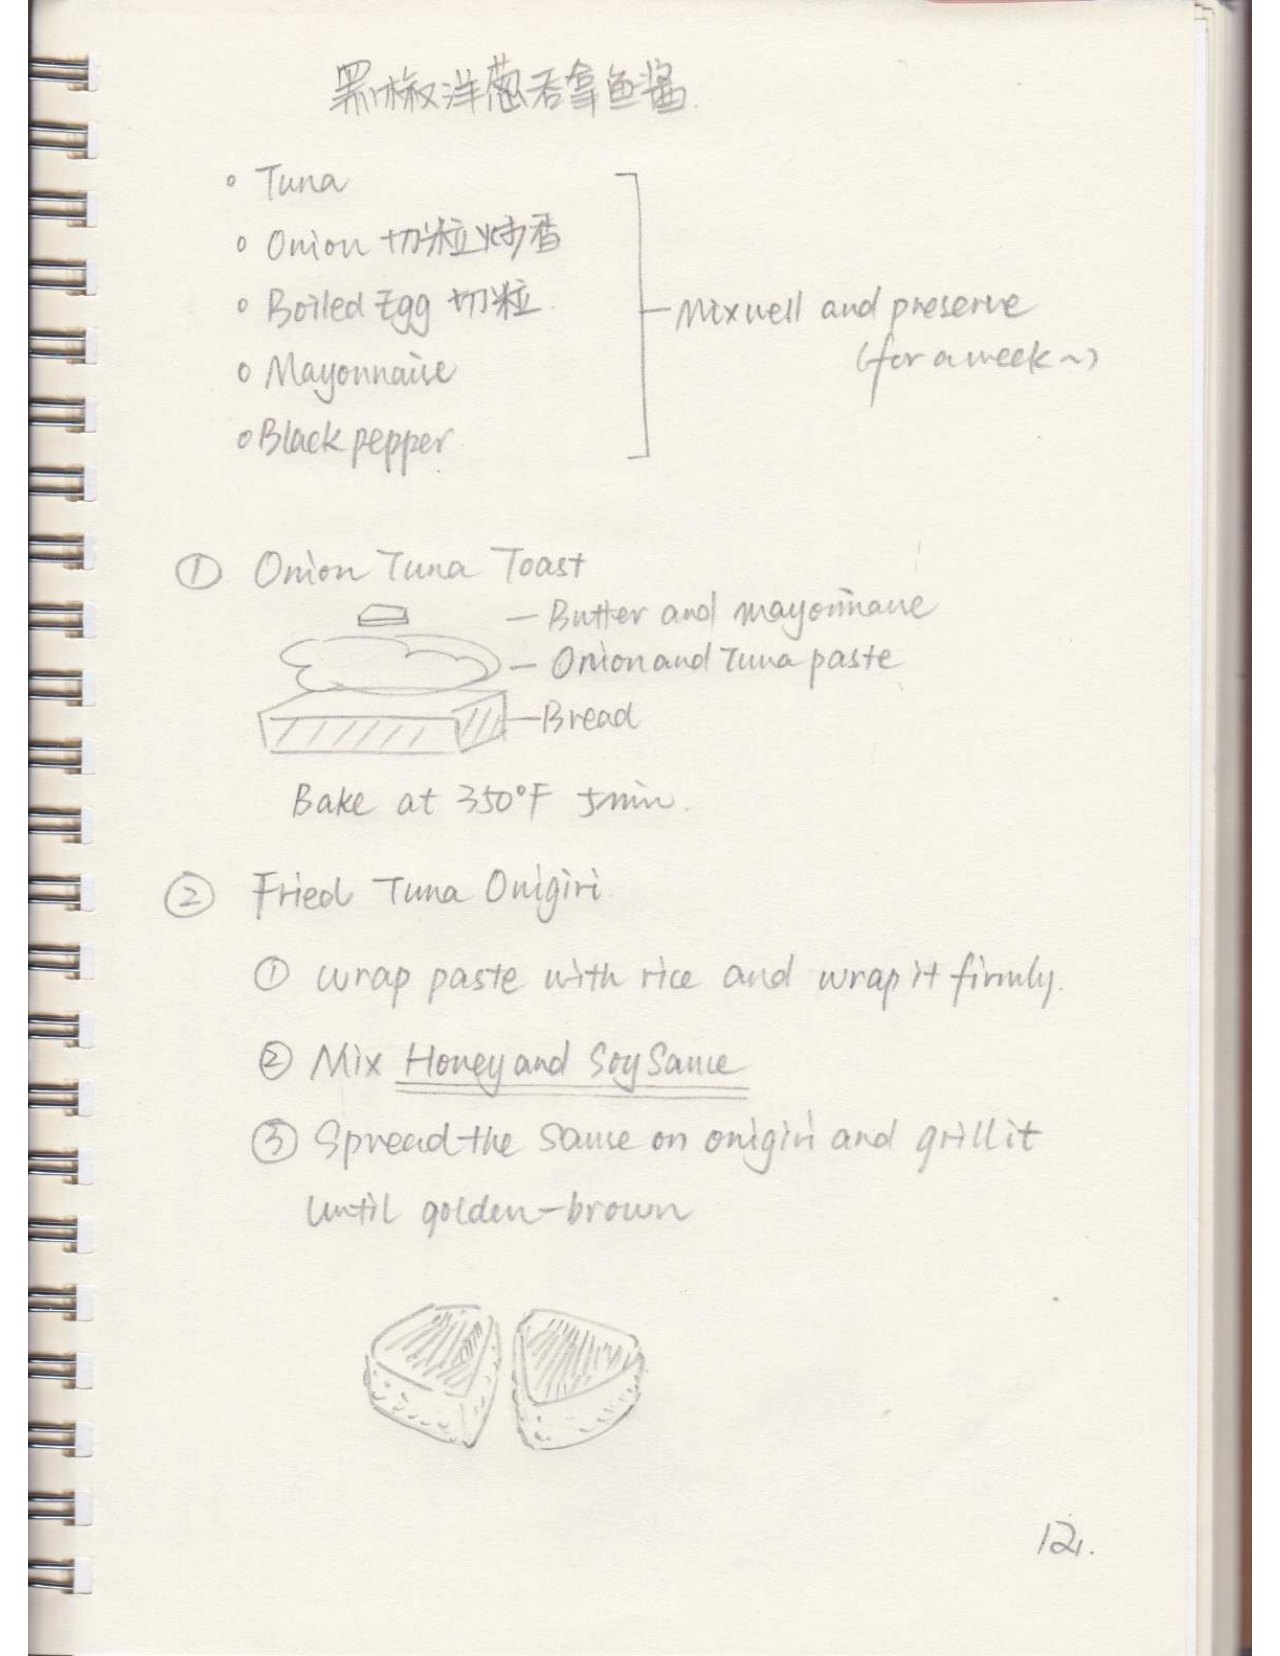 黑椒洋葱吞拿鱼酱
Tuna
Onion 切粒炒香
Boiled Egg 切粒
Mayonnaise
Black pepper
Mix well and preserve
(for a week ~)
① Onion Tuna Toast
Butter and mayonnaise
Onion and Tuna paste
Bread
Bake at 350°F 5min.
② Fried Tuna Onigiri
① wrap paste with rice and wrap it firmly.
② Mix Honey and Soy Sauce
③ Spread the sauce on onigiri and grill it
until golden-brown
12.